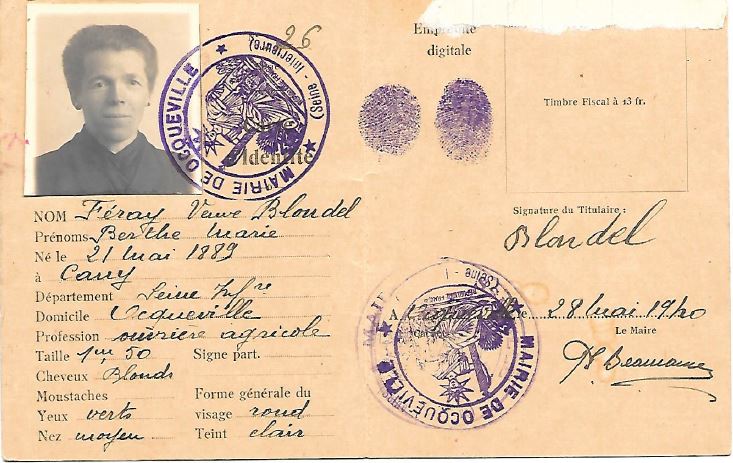 96
MAIRIE DE OCQUEVILLE
(Seine - Inférieure)
d'Identité
NOM Féray Veuve Blondel
Prénoms Berthe Marie
Né le 21 Mai 1889
à Cany
Département Seine Infre
Domicile Ocqueville
Profession ouvrière agricole
Taille 1m 50 Signe part.
Cheveux Blonds
Moustaches
Forme générale du
Yeux verts visage rond
Nez moyen Teint clair
Empreinte
digitale
Timbre Fiscal à 13 fr.
Signature du Titulaire :
Blondel
A Ocqueville le 28 Mai 1940
Le Maire
MAIRIE DE OCQUEVILLE